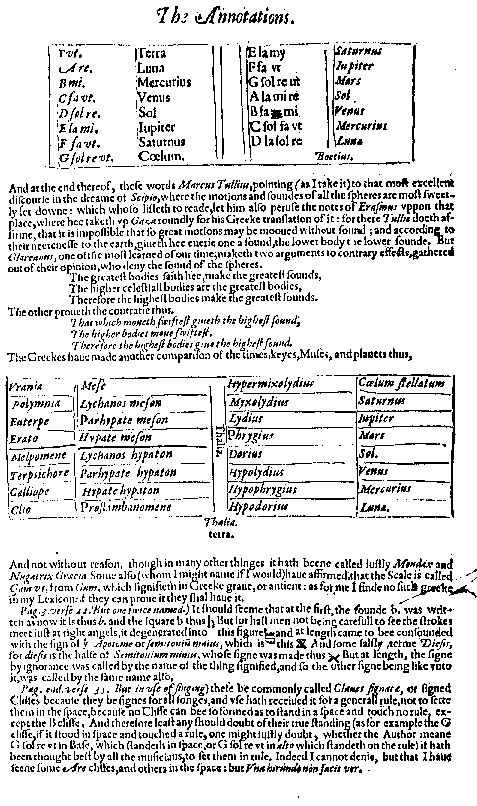 The Annotations.
Γ vt. Terra Elamy Saturnus
A re. Luna Ffa vt Iupiter
B mi. Mercurius G sol re ut Mars
C fa vt. Venus A la mi re Sol
D sol re. Sol B fa mi Venus
E la mi. Iupiter C sol fa vt Mercurius
F fa vt. Saturnus D la sol re Luna
G sol re vt. Cœlum. Boetius.
And at the end thereof, these words Marcus Tullius, pointing (as I take it) to that most excellent
discourse in the dreame of Scipio, where the motions and soundes of all the spheres are most sweet-
ly set downe: which whoso listeth to reade, let him also peruse the notes of Erasmus vppon that
place, where hee taketh vp Gaza roundly for his Greeke translation of it: for there Tullie doeth af-
firme, that it is impossible that so great motions may be mooued without sound; and according to
their neerenesse to the earth, giueth hee euerie one a sound, the lower body the lower sounde. But
Glareanus, one of the most learned of our time, maketh two arguments to contrary effects, gathered
out of their opinion, who deny the sound of the spheres.
The greatest bodies saith hee, make the greatest sounds,
The higher celestiall bodies are the greatest bodies,
Therefore the highest bodies make the greatest sounds.
The other proueth the contrarie thus.
That which moueth swiftest giueth the highest sound,
The higher bodies moue swiftest,
Therefore the highest bodies giue the highest sound.
The Greekes haue made another comparison of the tunes, keyes, Muses, and planets thus,
Vrania Mese Hypermixolydius Cœlum stellatum
Polymnia Lychanos meson Mixolydius Saturnus
Euterpe Parhypate meson Lydius Iupiter
Erato Hypate meson Phrygius Mars
Melpomene Lychanos hypaton Dorius Sol.
Terpsichore Parhypate hypaton Hypolydius Venus
Calliope Hypate hypaton Hypophrygius Mercurius
Clio Proslambanomene Hypodorius Luna.
Thalia.
Thalia.
terra.
And not without reason, though in many other thinges it hath beene called iustly Mendax and
Nugatrix Græcia Some also (whom I might name if I would) haue affirmed, that the Scale is called
Gam vt, from Gam, which signifieth in Greeke graue, or antient: as for me I finde no such greeke
in my Lexicon: if they can prove it they shall haue it.
But one twice named.) It should seeme that at the first, the sounde b. was writ-
ten as now it is thus b, and the square b thus But for hast men not being carefull to see the strokes
meet iust at right angels, it degenerated into this figure and at length came to bee confounded
with the sign of Apotome or semitonium maius, which is this And some falsly terme Diesis,
for diesis is the halfe of Semitonium minus, whose signe was made thus But at length, the signe
by ignorance was called by the name of the thing signified, and so the other signe being like vnto
it, was called by the same name also,
Pag. ead. verse 33. But in vse of singing) these be commonly called Claues signatæ, or signed
Cliffes because they be signes for all songes, and vse hath receiued it for a generall rule, not to sette
them in the space, because no Cliffe can bee so formed as to stand in a space and touch no rule, ex-
cept the B cliffe. And therefore least any should doubt of their true standing (as for example the G
cliffe, if it stood in space and touched a rule, one might iustly doubt, whether the Author meane
G sol re vt in Base, which standeth in space, or G sol re vt in alto which standeth on the rule) it hath
been thought best by all the musicians, to set them in rule. Indeed I cannot denie, but that I haue
seene some Are cliffes, and others in the space: but Vna hirundo non facit ver.